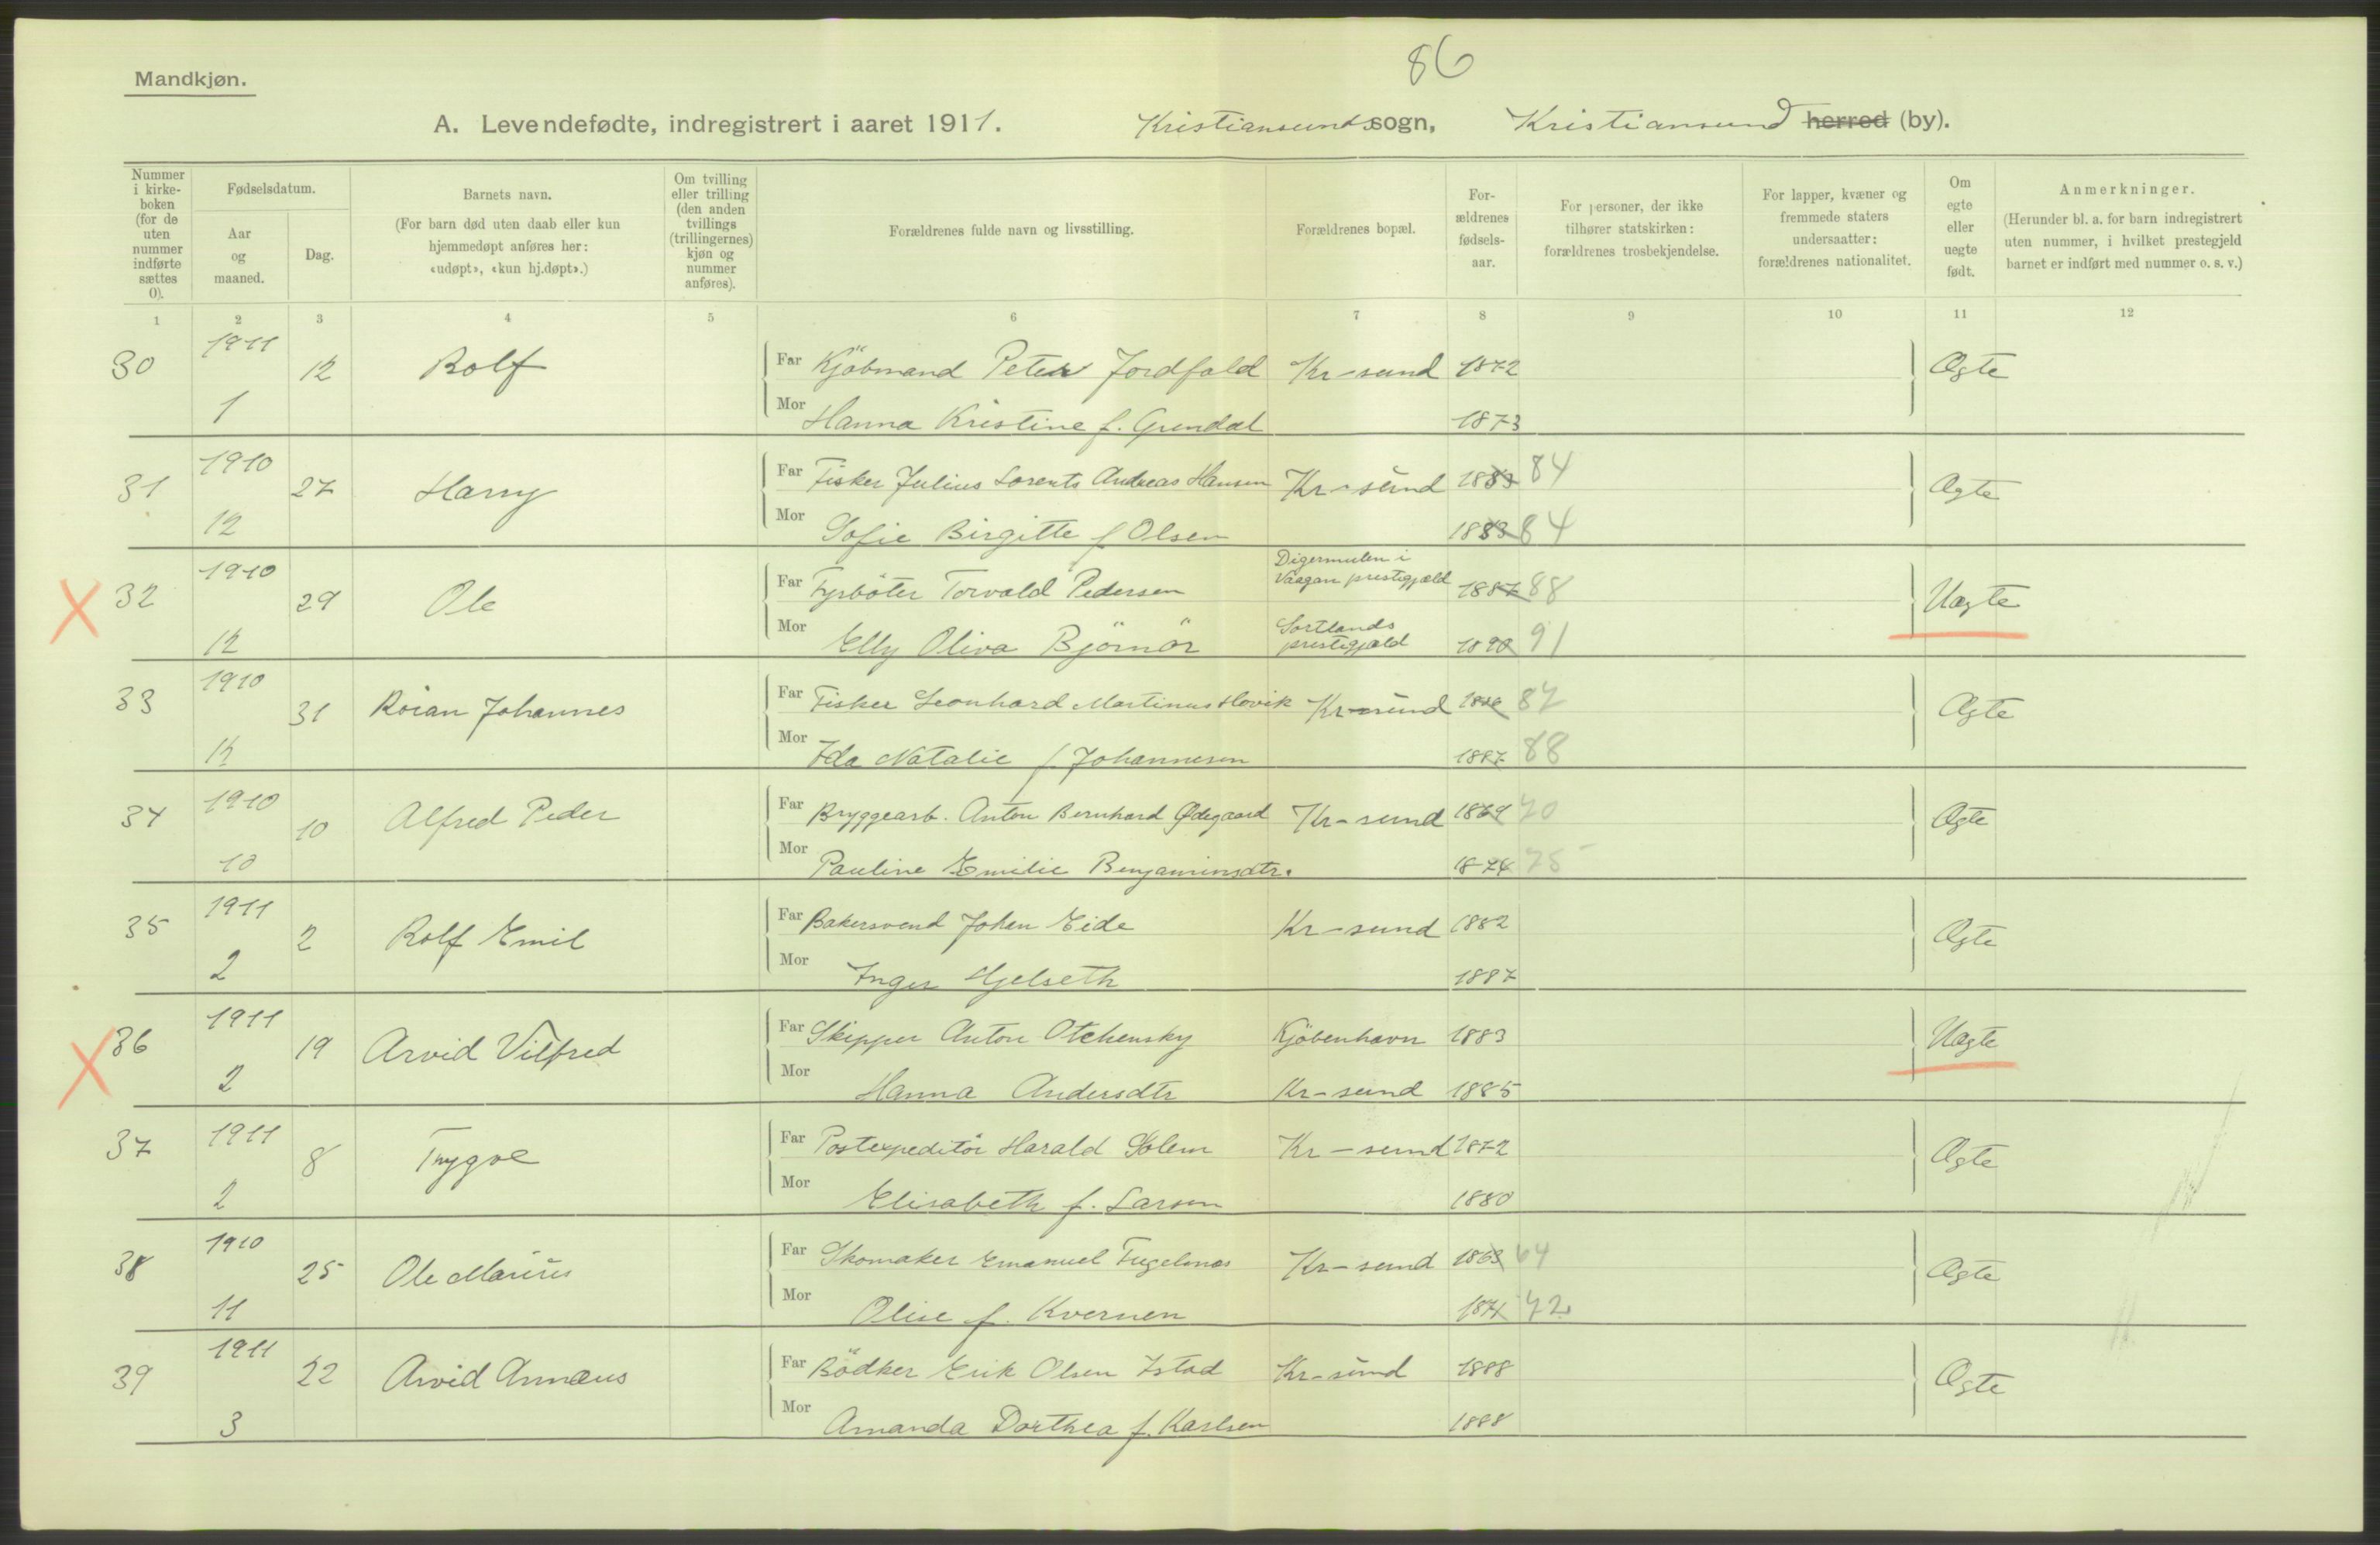 86
Mandkjøn.
A. Levendefødte, indregistrert i aaret 1911. Kristiansunds sogn, Kristiansund herred (by).
Nummer i kirke-boken (for de uten nummer indførte sættes 0).
Fødselsdatum.
Aar og maaned.
Dag.
Barnets navn.
(For barn død uten daab eller kun hjemmedøpt anføres her: «udøpt», «kun hj.døpt».)
Om tvilling eller trilling (den anden tvillings (trillingernes) kjøn og nummer anføres).
Forældrenes fulde navn og livsstilling.
Forældrenes bopæl.
For-ældrenes fødsels-aar.
For personer, der ikke tilhører statskirken: forældrenes trosbekjendelse.
For lapper, kvæner og fremmede staters undersaatter: forældrenes nationalitet.
Om egte eller uegte født.
Anmerkninger.
(Herunder bl. a. for barn indregistrert uten nummer, i hvilket prestegjeld barnet er indført med nummer o. s. v.)
1 2 3 4 5 6 7 8 9 10 11 12
30 1911 1 12 Rolf
Far Kjøbmand Peter Jordfald Kr-sund 1872 Ægte
Mor Hanna Kristine f. Grendal 1873
31 1910 12 27 Harry
Far Fisker Julius Lorents Andreas Hansen Kr-sund 1883 84 Ægte
Mor Sofie Birgitte f Olsen 1883 84
32 1910 12 29 Ole
Far Fyrbøter Torvald Pedersen Digermulen i Vaagan prestegjæld 1887 88 Uægte
Mor Elly Oliva Bjørnør Sortlands prestegjæld 1890 91
33 1910 12 31 Roian Johannes
Far Fisker Leonhard Martinus Hovik Kr-sund 1886 87 Ægte
Mor Ida Natalie f Johannesen 1887 88
34 1910 10 10 Alfred Peder
Far Bryggearb. Anton Bernhard Ødegaard Kr-sund 1869 70 Ægte
Mor Pauline Emilie Benjaminsdtr. 1874 75
35 1911 2 2 Rolf Emil
Far Bakersvend Johan Eide Kr-sund 1882 Ægte
Mor Inger Hjelseth 1887
36 1911 2 19 Arvid Vilfred
Far Skipper Anton Otchensky Kjøbenhavn 1883 Uægte
Mor Hanna Andersdtr Kr-sund 1885
37 1911 2 8 Trygve
Far Postexpeditør Harald Solem Kr-sund 1872 Ægte
Mor Elisabeth f. Larsen 1880
38 1910 11 25 Ole Marius
Far Skomaker Emanuel Fugelnæs Kr-sund 1863 64 Ægte
Mor Olise f. Kvernen 1871 72
39 1911 3 22 Arvid Annæus
Far Bødker Erik Olsen Istad Kr-sund 1888 Ægte
Mor Amanda Dorthea f. Karlsen 1888